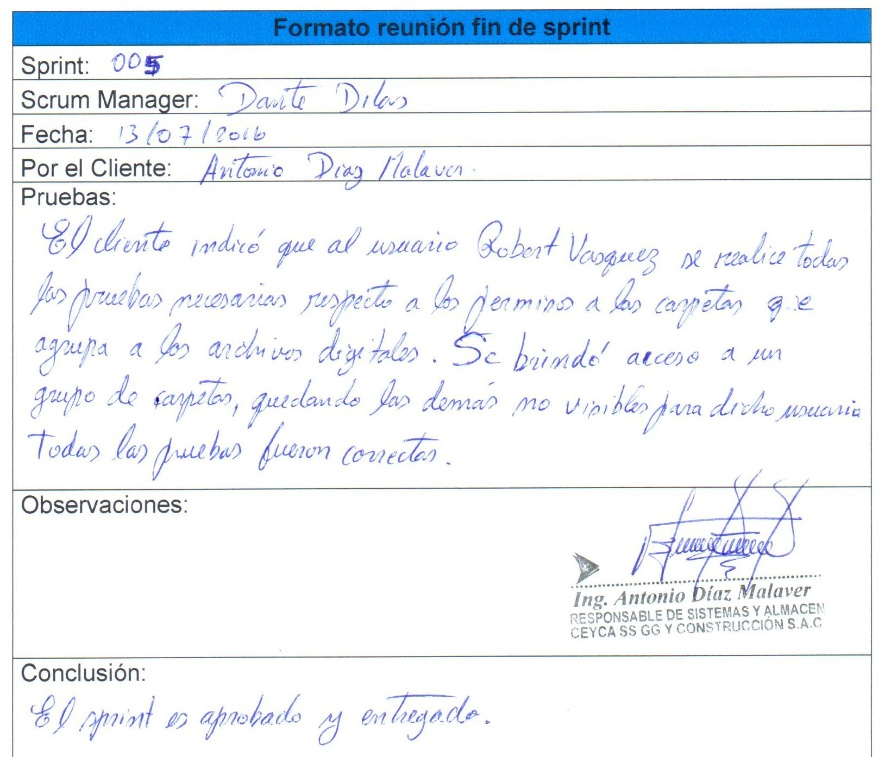 Formato reunión fin de sprint
Sprint: 005
Scrum Manager: Dante Dilas
Fecha: 13/07/2016
Por el Cliente: Antonio Diaz Malaver.
Pruebas:
El cliente indicó que al usuario Robert Vasquez se realice todas
las pruebas necesarias respecto a los permisos a las carpetas que
agrupa a los archivos digitales. Se brindó acceso a un
grupo de carpetas, quedando las demás no visibles para dicho usuario
Todas las pruebas fueron correctas.
Observaciones:
Ing. Antonio Díaz Malaver
RESPONSABLE DE SISTEMAS Y ALMACEN
CEYCA SS GG Y CONSTRUCCIÓN S.A.C
Conclusión:
El sprint es aprobado y entregado.